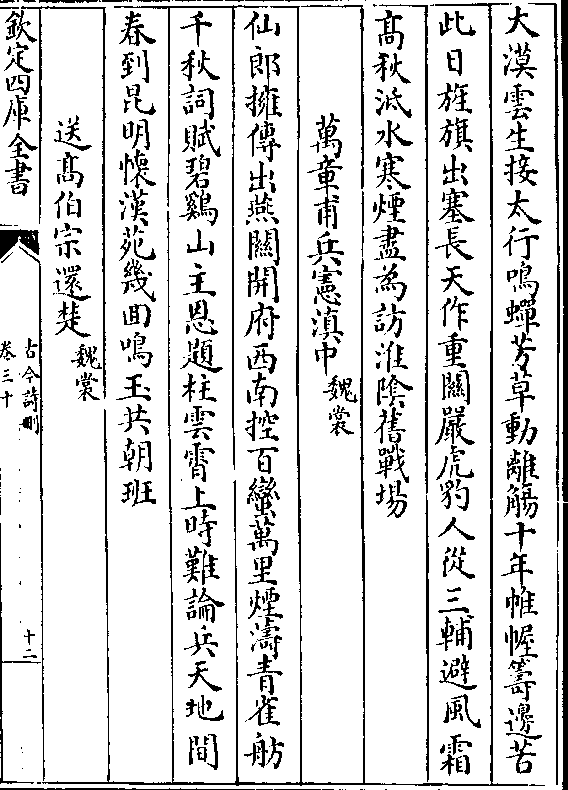 大漠雲生接太行鳴蟬芳草動離觴十年帷幄籌邊苦
此日旌旗出塞長天作重關嚴虎豹人從三輔避風霜
髙秋泜水寒煙盡為訪淮陰舊戰場
萬章甫兵憲滇中　魏裳
仙郎擁傳出燕關開府西南控百蠻萬里煙濤青雀舫
千秋詞賦碧鷄山主恩題柱雲霄上時難論兵天地間
春到昆明懷漢苑幾回鳴玉共朝班
送髙伯宗還楚　魏裳
欽定四庫全書
古今詩刪
卷三十
十二